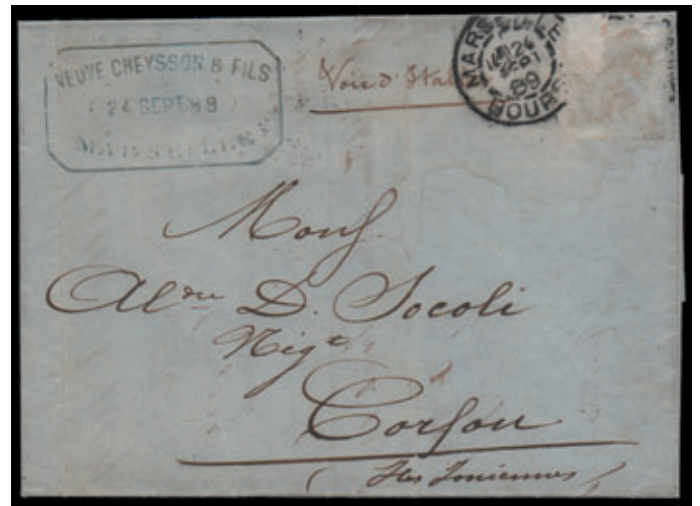 VEUVE CHEYSSON & FILS
24 SEPT 89
MARSEILLE
Voie d'Ital
MARSEILLE
24
SEPT
89
BOURSE
Monsʳ
Alᵈʳᵉ D. Socoli
Nigᵗ
Corfou
(Iles Ioniennes)